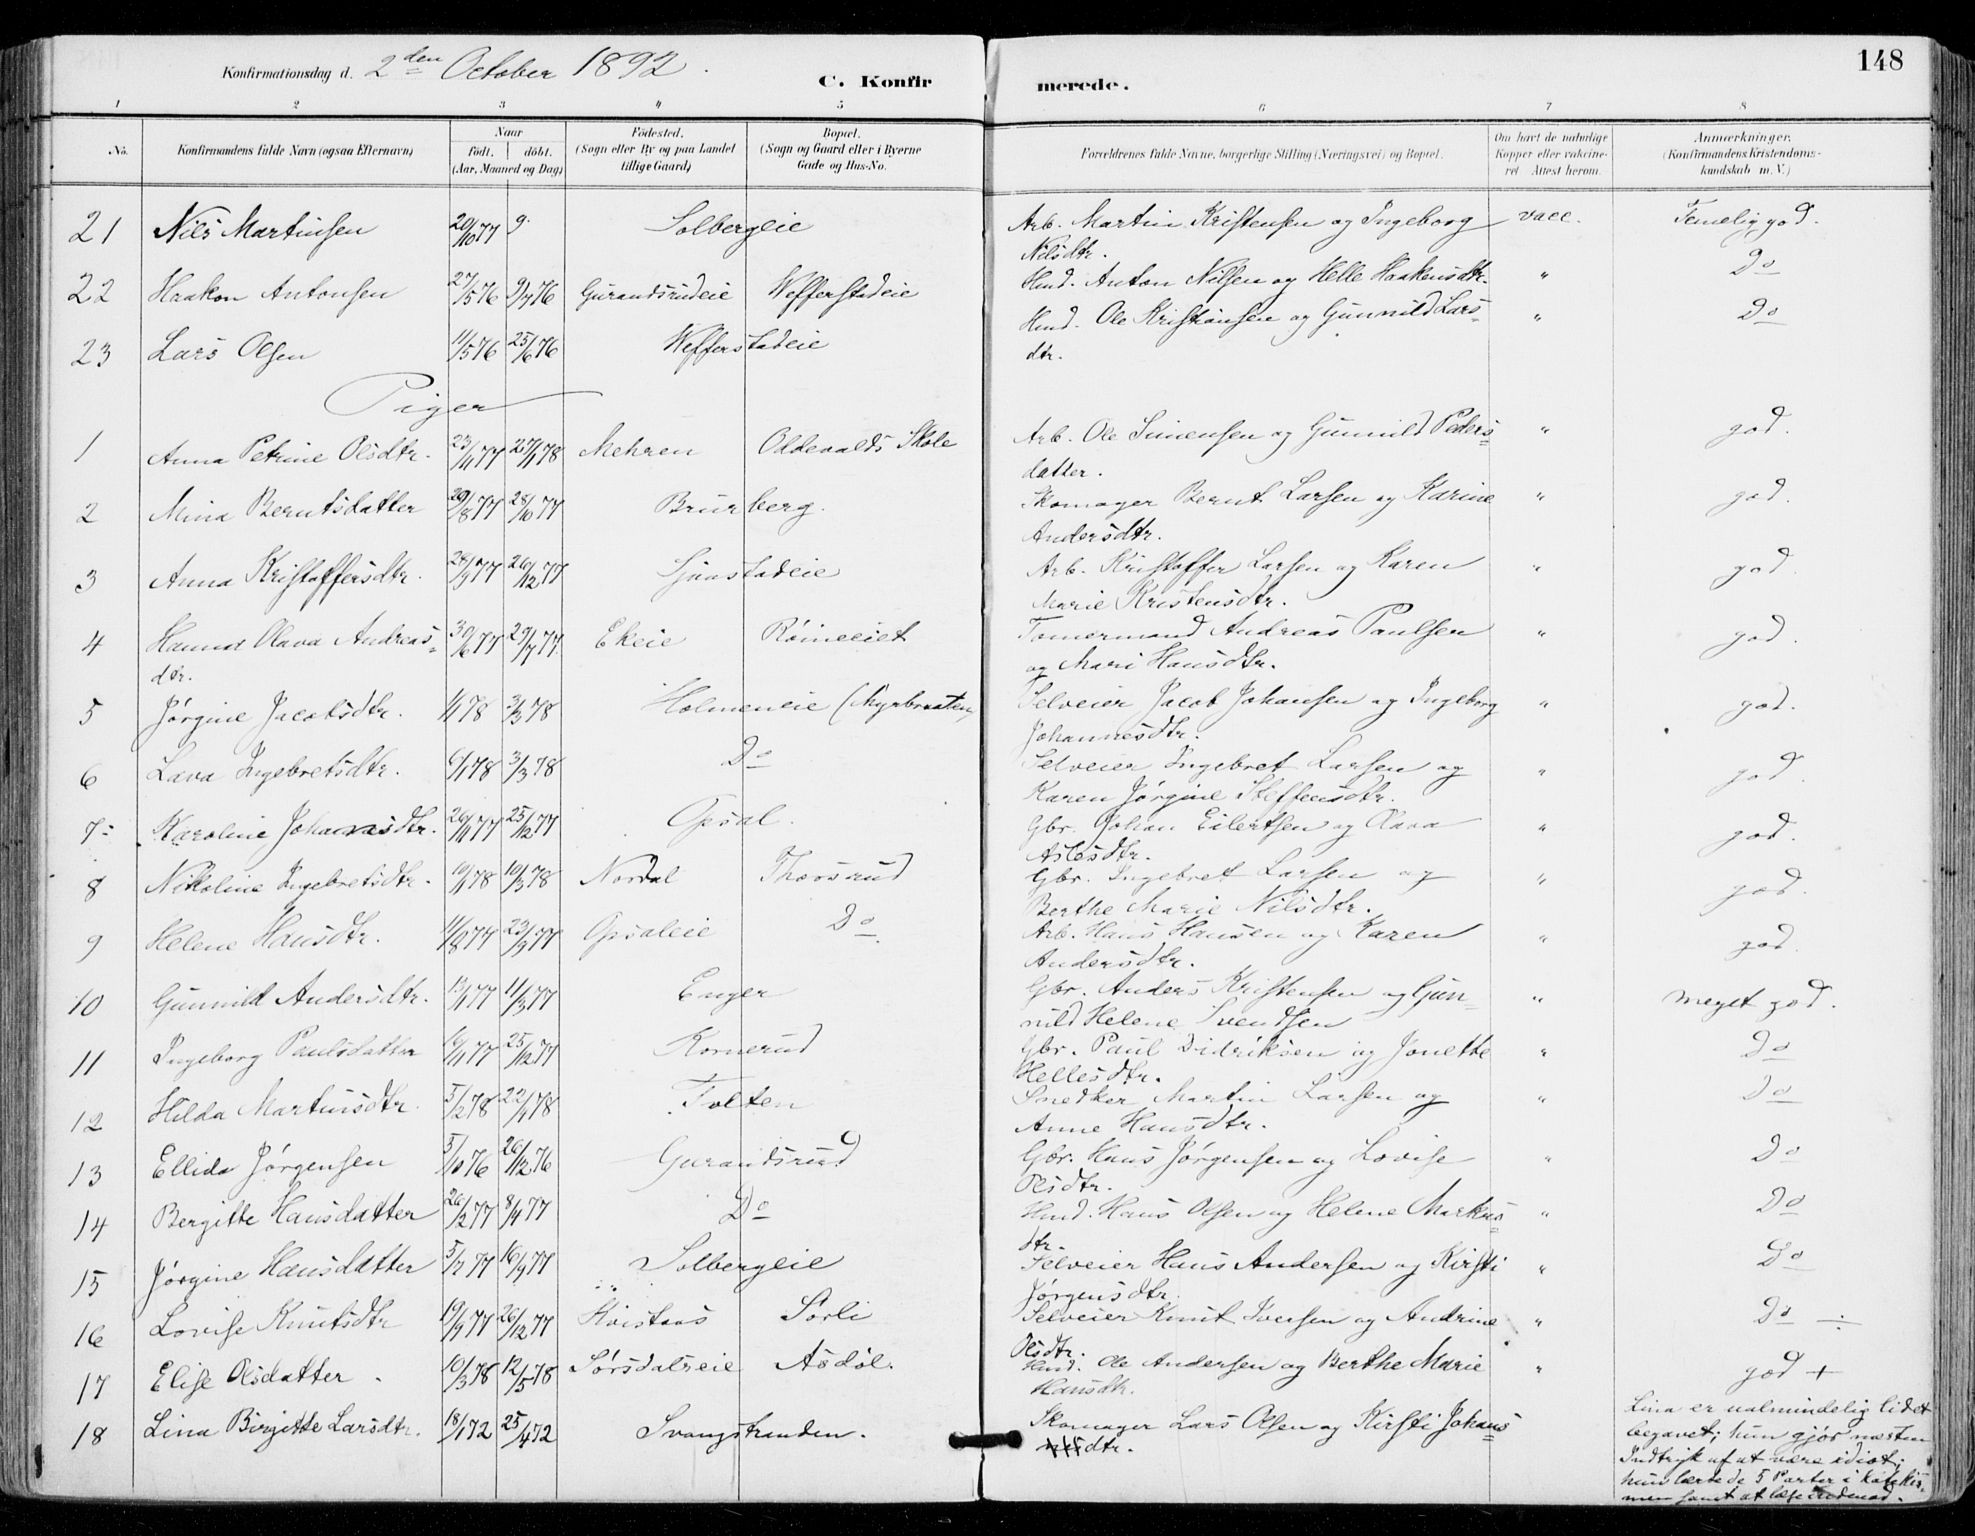 148
Konfirmationsdag d. 2den October 1892.
C. Konfir merede.
1 2 3 4 5 6 7 8
No. Konfirmandens fulde Navn (ogsaa Efternavn) Naar födt. döbt. (Aar, Maaned og Dag) Födested. (Sogn eller By og paa Landet tillige Gaard) Bopæl. (Sogn og Gaard eller i Byerne Gade og Hus-No. Forældrenes fulde Navne, borgerlige Stilling (Næringsvei) og Bopæl. Om havt de naturlige Kopper eller vakcineret. Attest herom. Anmærkninger. (Konfirmandens Kristendomskundskab m. V.)
21 Nils Martinsen 20/10 77 9. Solbergeie Arb. Martin Kristensen og Ingeborg vacc. Temelig god.
Nilsdtr.
22 Haakon Antonsen 27/5 76 9/7 76 Gurandsrudeie Wefferstadeie Hmd. Anton Nilsen og Helle Haakensdtr. " Do
23 Lars Olsen 11/5 76 25/6 76 Wefferstadeie Hmd. Ole Kristiansen og Gunnild Lars= " Do
dtr.
Piger
1 Anna Petrine Olsdtr. 23/11 77 27/1 78 Mehren Oddevalds Skole Arb. Ole Simensen og Gunnild Peders= " god.
datter.
2 Mina Berntsdatter 29/8 77 28/10 77 Brurberg. Skomager Bernt Larsen og Karine " god.
Andersdtr.
3 Anna Kristoffersdtr. 28/9 77 26/12 77 Sjaastadeie Arb. Kristoffer Larsen og Karen " god.
Marie Kristensdtr.
4 Hanna Olava Andreas= 30/6 77 29/7 77. Ekeie Röineeiet Tømermand Andreas Paulsen " god.
dtr. og Mari Hansdtr.
5 Jørgine Jacobsdtr. 1/1 78 3/3 78 Holmeneie (Myrbraaten) Selveier Jacob Johansen og Ingeborg " god.
Johannesdtr.
6 Lava Ingebretsdtr. 6/1 78 3/3 78 Do Selveier Ingebret Larsen og " god.
Karen Jørgine Steffensdtr.
7 Karoline Johansdtr. 26/11 77 25/12 77 Opsal. Gbr. Johan Eilertsen og Olava " god.
Aslesdtr.
8 Nikoline Ingebretsdtr. 10/1 78 10/3 78 Nordal Thorsrud Gbr. Ingebret Larsen og " god.
Berthe Marie Nilsdtr.
9 Helene Hansdtr. 11/8 77 23/9 77 Opsaleie Do. Arb. Hans Hansen og Karen " god.
Andersdtr.
10 Gunnild Andersdtr. 13/1 77 11/3 77 Enger Gbr. Anders Kristensen og Gun= " meget god.
nild Helene Svendsen
11 Ingeborg Paulsdatter 16/11 77 25/12 77 Kornerud Gbr. Paul Didriksen og Jonette " Do
Hellesdtr.
12 Hilda Martinsdtr. 5/2 78 22/4 78 Tolten Snedker Martin Larsen og " Do
Anne Hansdtr.
13 Ellida Jørgensen 5/10 76 26/12 76 Gurandsrud Gbr. Hans Jørgensen og Lovise " Do
Olsdtr.
14 Bergitte Hansdatter 26/2 77 8/4 77 Do Hmd. Hans Olsen og Helene Markus= " Do
dtr.
15 Jørgine Hansdatter 5/7 77 16/9 77 Solbergeie Selveier Hans Andersen og Kirsti " Do
Jörgensdtr.
16 Lovise Knutsdtr 19/9 77 26/12 77 Kvistaas Sörli Selveier Knut Iversen og Andrine " Do ÷
Olsdtr.
17 Elise Olsdatter 10/3 78 12/5 78 Sørsdalseie Asdøl. Hmd. Ole Andersen og Berthe Marie " god +
Hansdtr.
18 Lina Birgitte Larsdtr. 18/1 72 25/4 72 Svangstranden. Skomager Lars Olsen og Kirsti Johans=
dtr.
Lina er ualmindelig lidet
begavet; hun gjör næsten
Indtryk af at være idiot;
hun lærte de 5 Parter i katekis=
men samt at læse